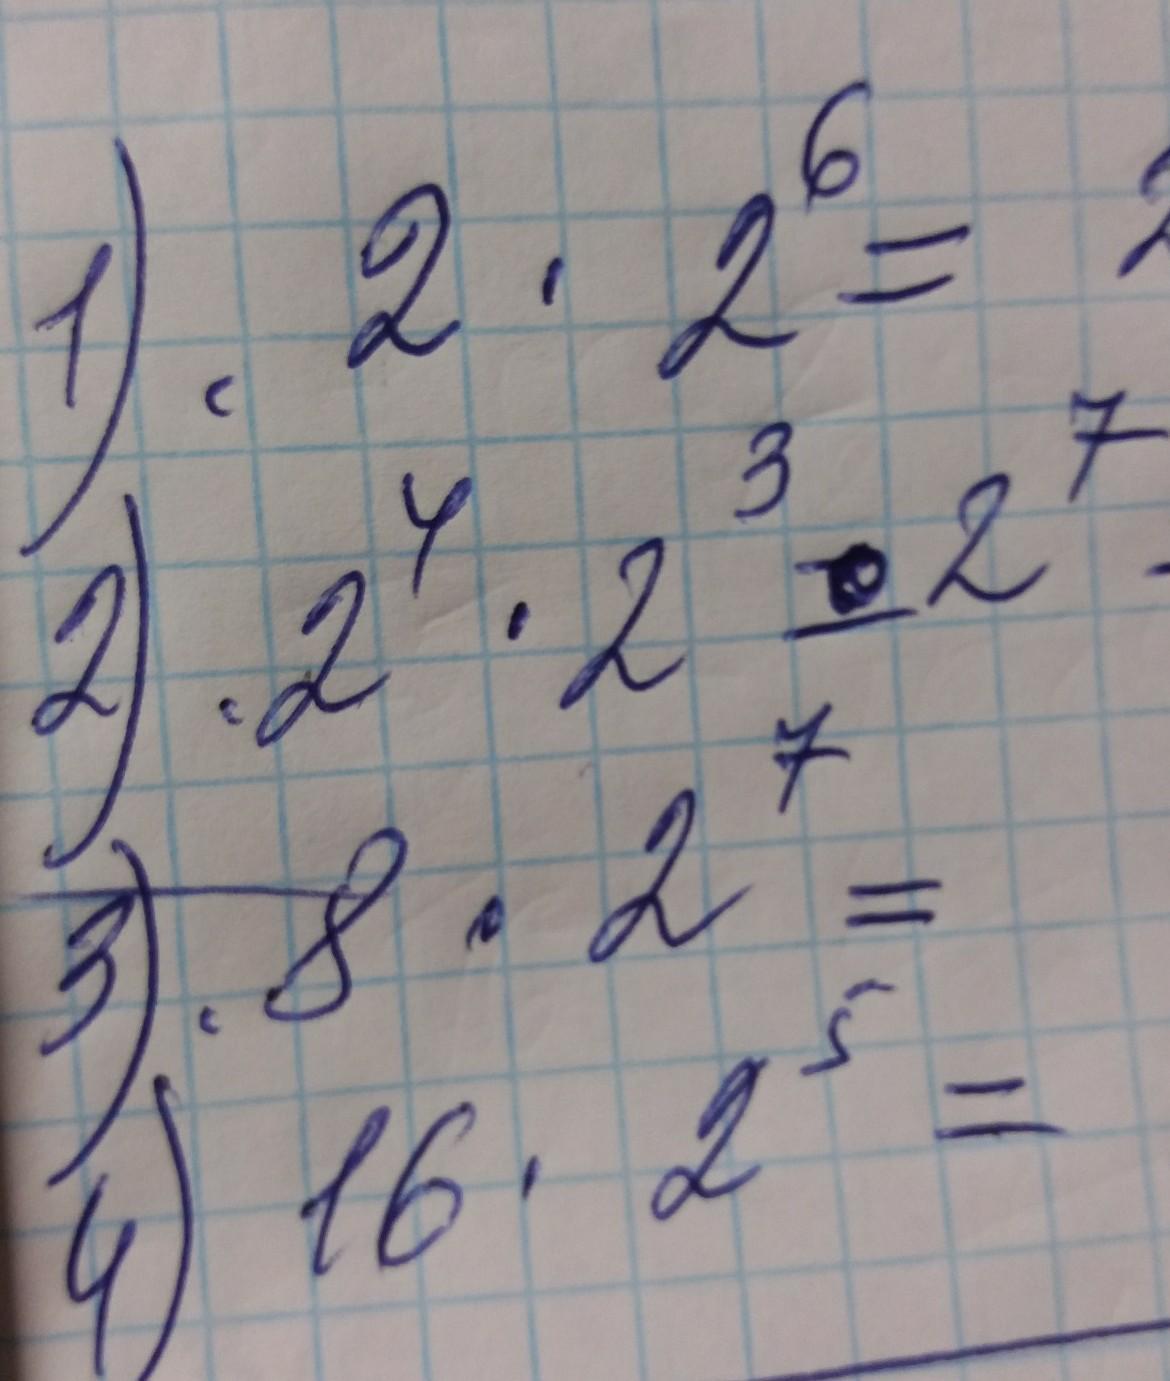 1). 2 · 2⁶ = 2
2). 2⁴ · 2³ = 2⁷ -
3). 8 · 2⁷ =
4) 16 · 2⁵ =